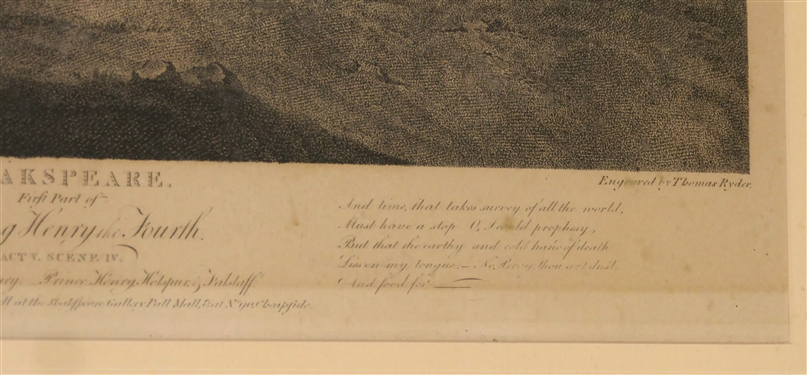 AKSPEARE.
First Part of
g Henry the Fourth.
ACT V. SCENE IV.
Prince Henry, Hotspur, & Falstaff
at the Shakspeare Gallery Pall Mall, & at No. 90 Cheapside.
Engraved by Thomas Ryder.
And time, that takes survey of all the world,
Must have a stop. O, I could prophesy,
But that the earthy and cold hand of death
Lies on my tongue:— No, Percy, thou art dust,
And food for ——